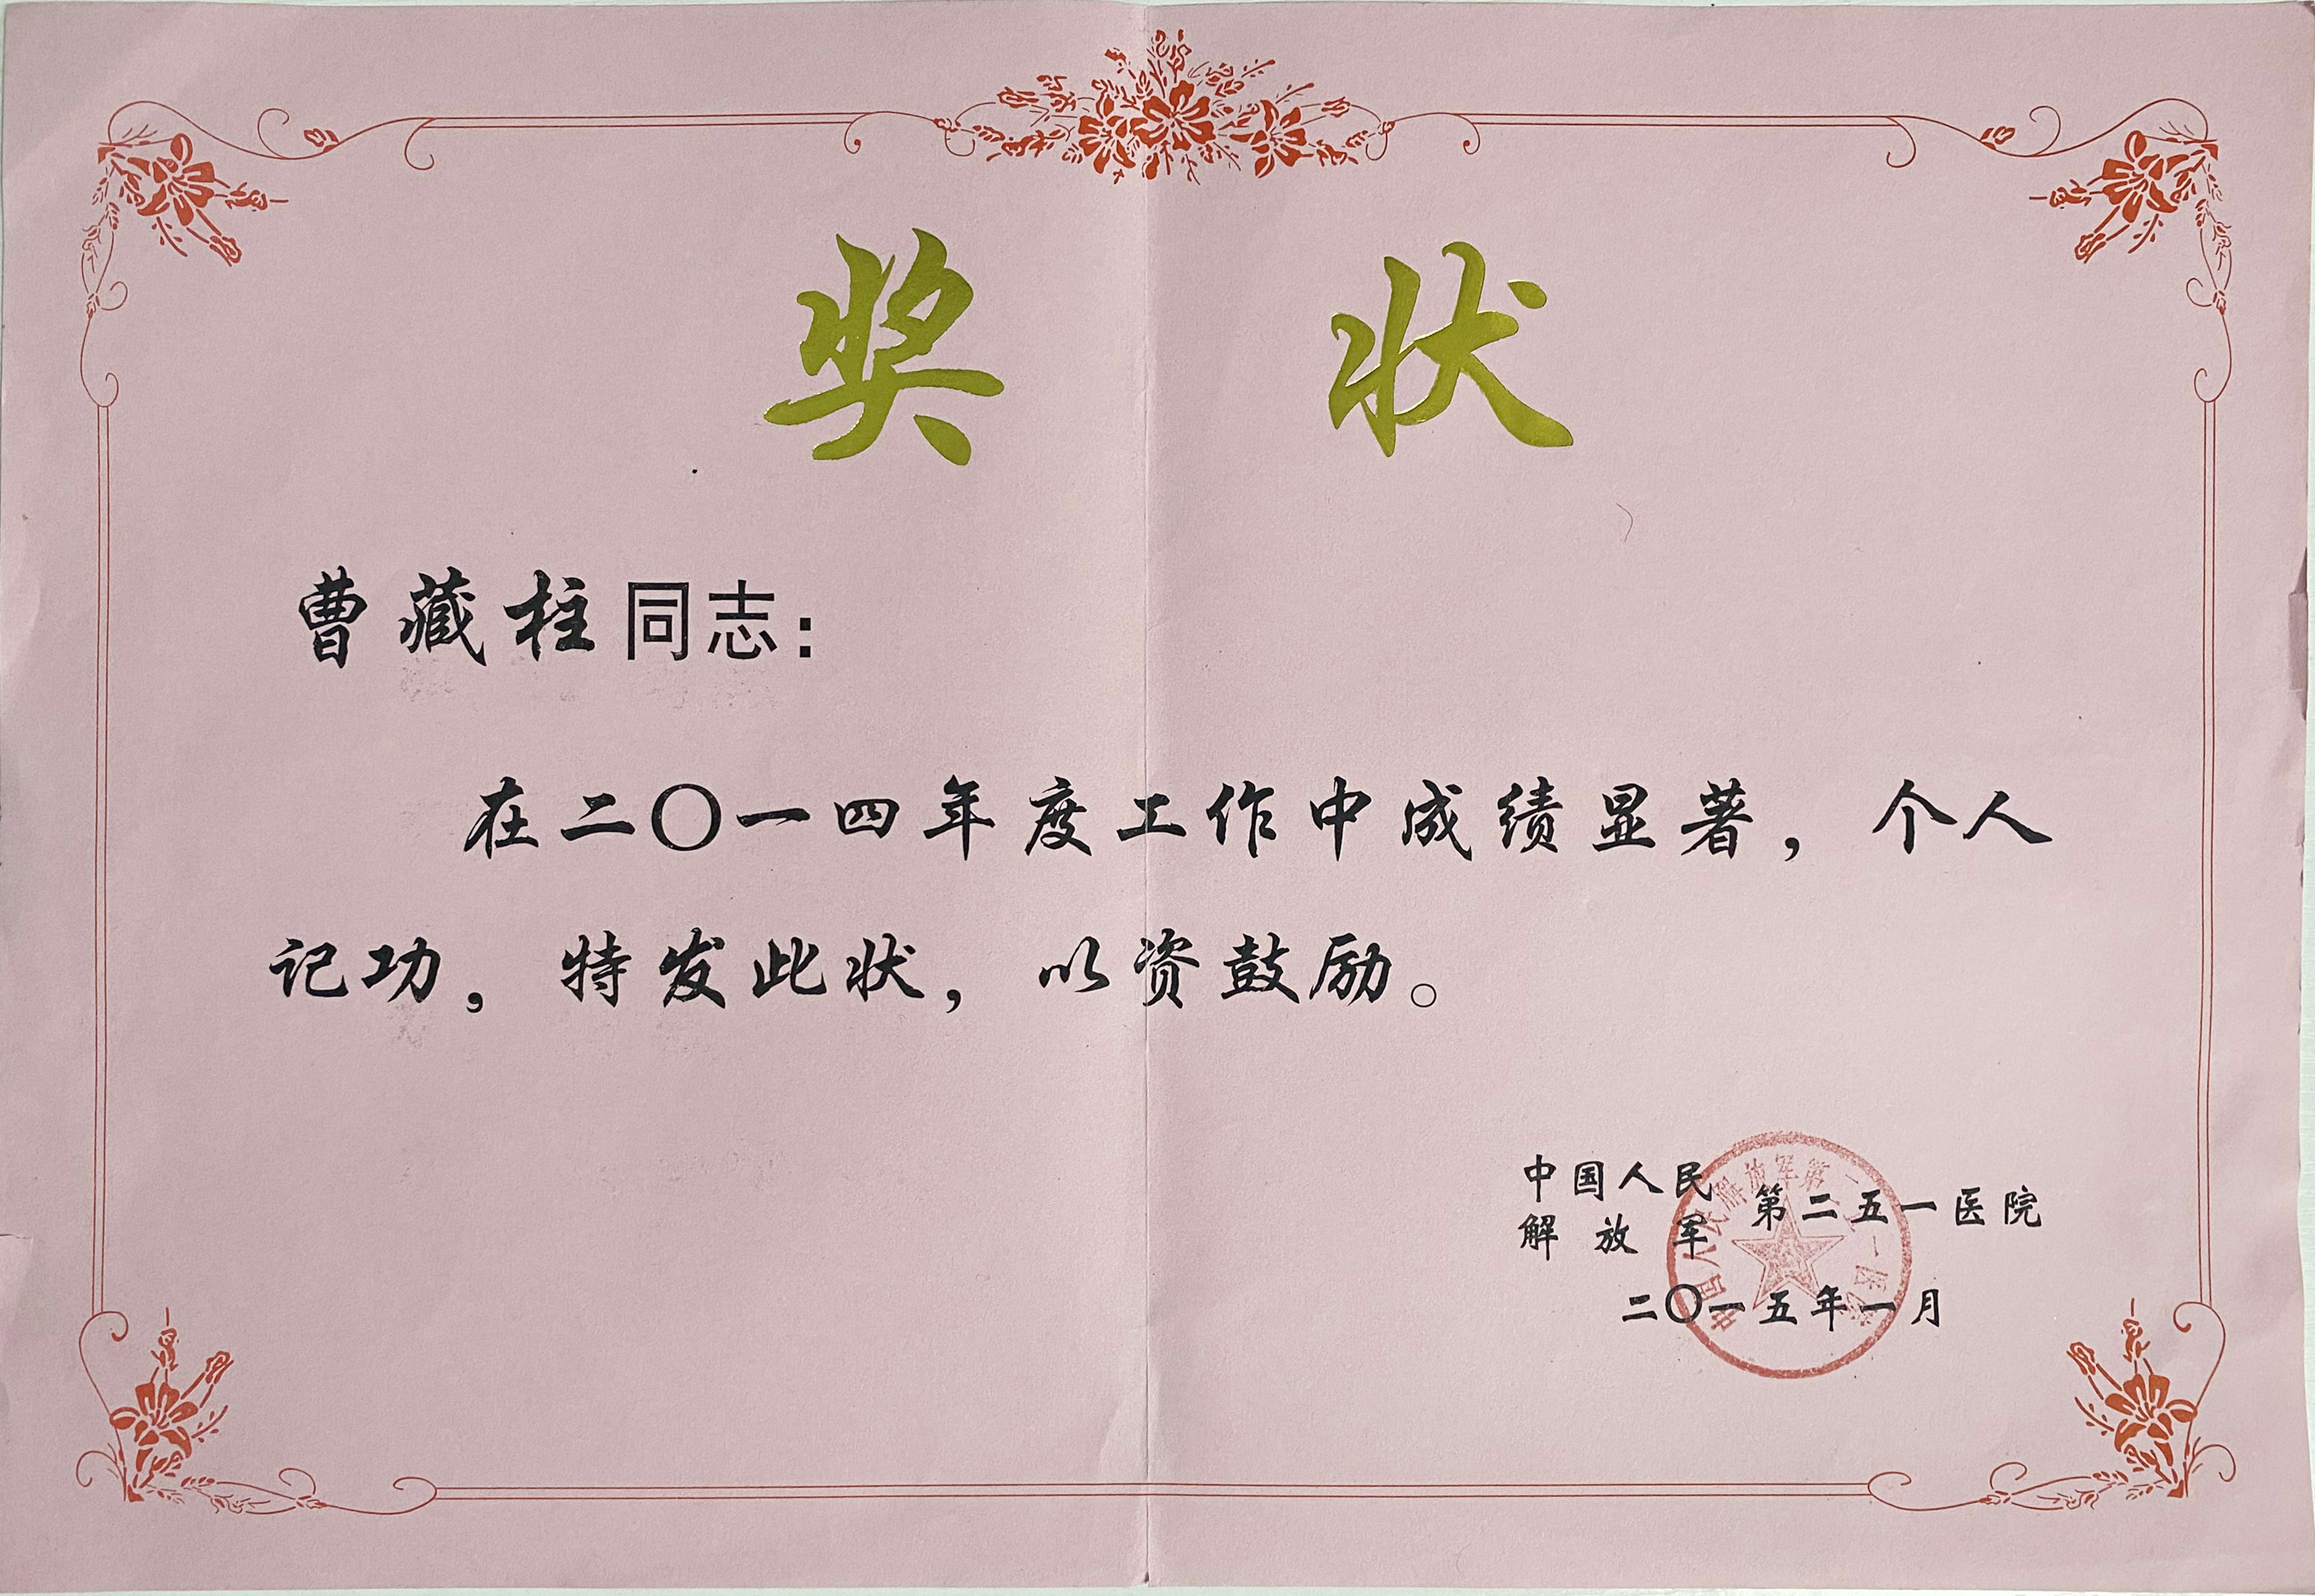 奖 状
曹藏柱同志：
在二〇一四年度工作中成绩显著，个人
记功，特发此状，以资鼓励。
中国人民
解放军
第二五一医院
二〇一五年一月